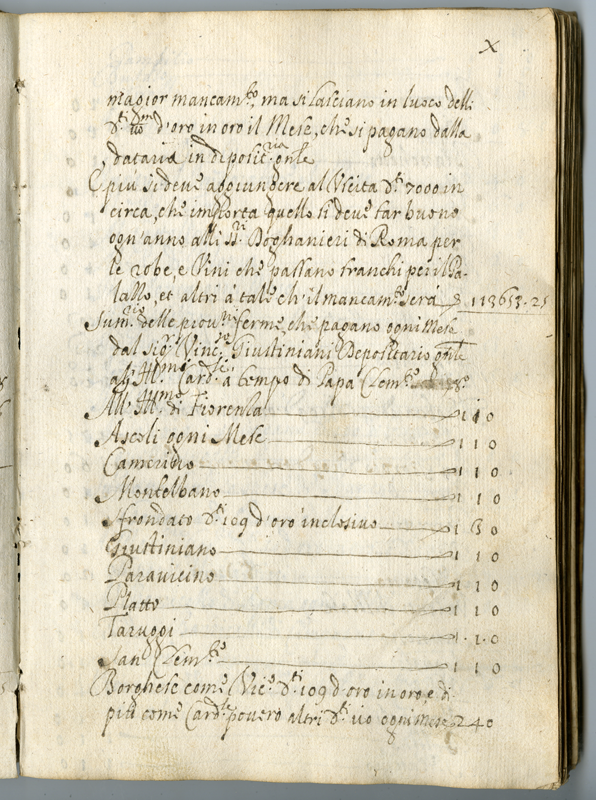 X
magior mancam.to, ma si lasciano in luoco delli
d.ti d'oro in oro il Mese, che si pagano dalla
dataria in deposit.ria gn̄le
E più si deve aggiungere al Vscita d.ti 7000 in
circa, che importa quello si deve far buono
ogn'anno alli SS.ri Doghanieri di Roma per
le robe, e Vini che passano franchi per il Pa-
lazzo, et altri à tale ch'il mancam.to serà 113653.25
Sum.rio delle provis.ni ferme, che pagano ogni Mese
dal sig.r Vinc.o Giustiniani Depositario gn̄le
agl'Ill.mi Card.li à tempo di Papa Clem.te 8.o
All'Ill.mo di Fiorenza 110
Ascoli ogni Mese 110
Camerino 110
Montelbano 110
Sfrondato d.ti 109 d'oro inclosivo 130
Giustiniano 110
Paravicino 110
Platto 110
Tarugi 110
San Clem.te 110
Borghese come Vic.o d.ti 109 d'oro in oro, e di
più come Card.l povero altri d.ti 110 ogni Mese 240